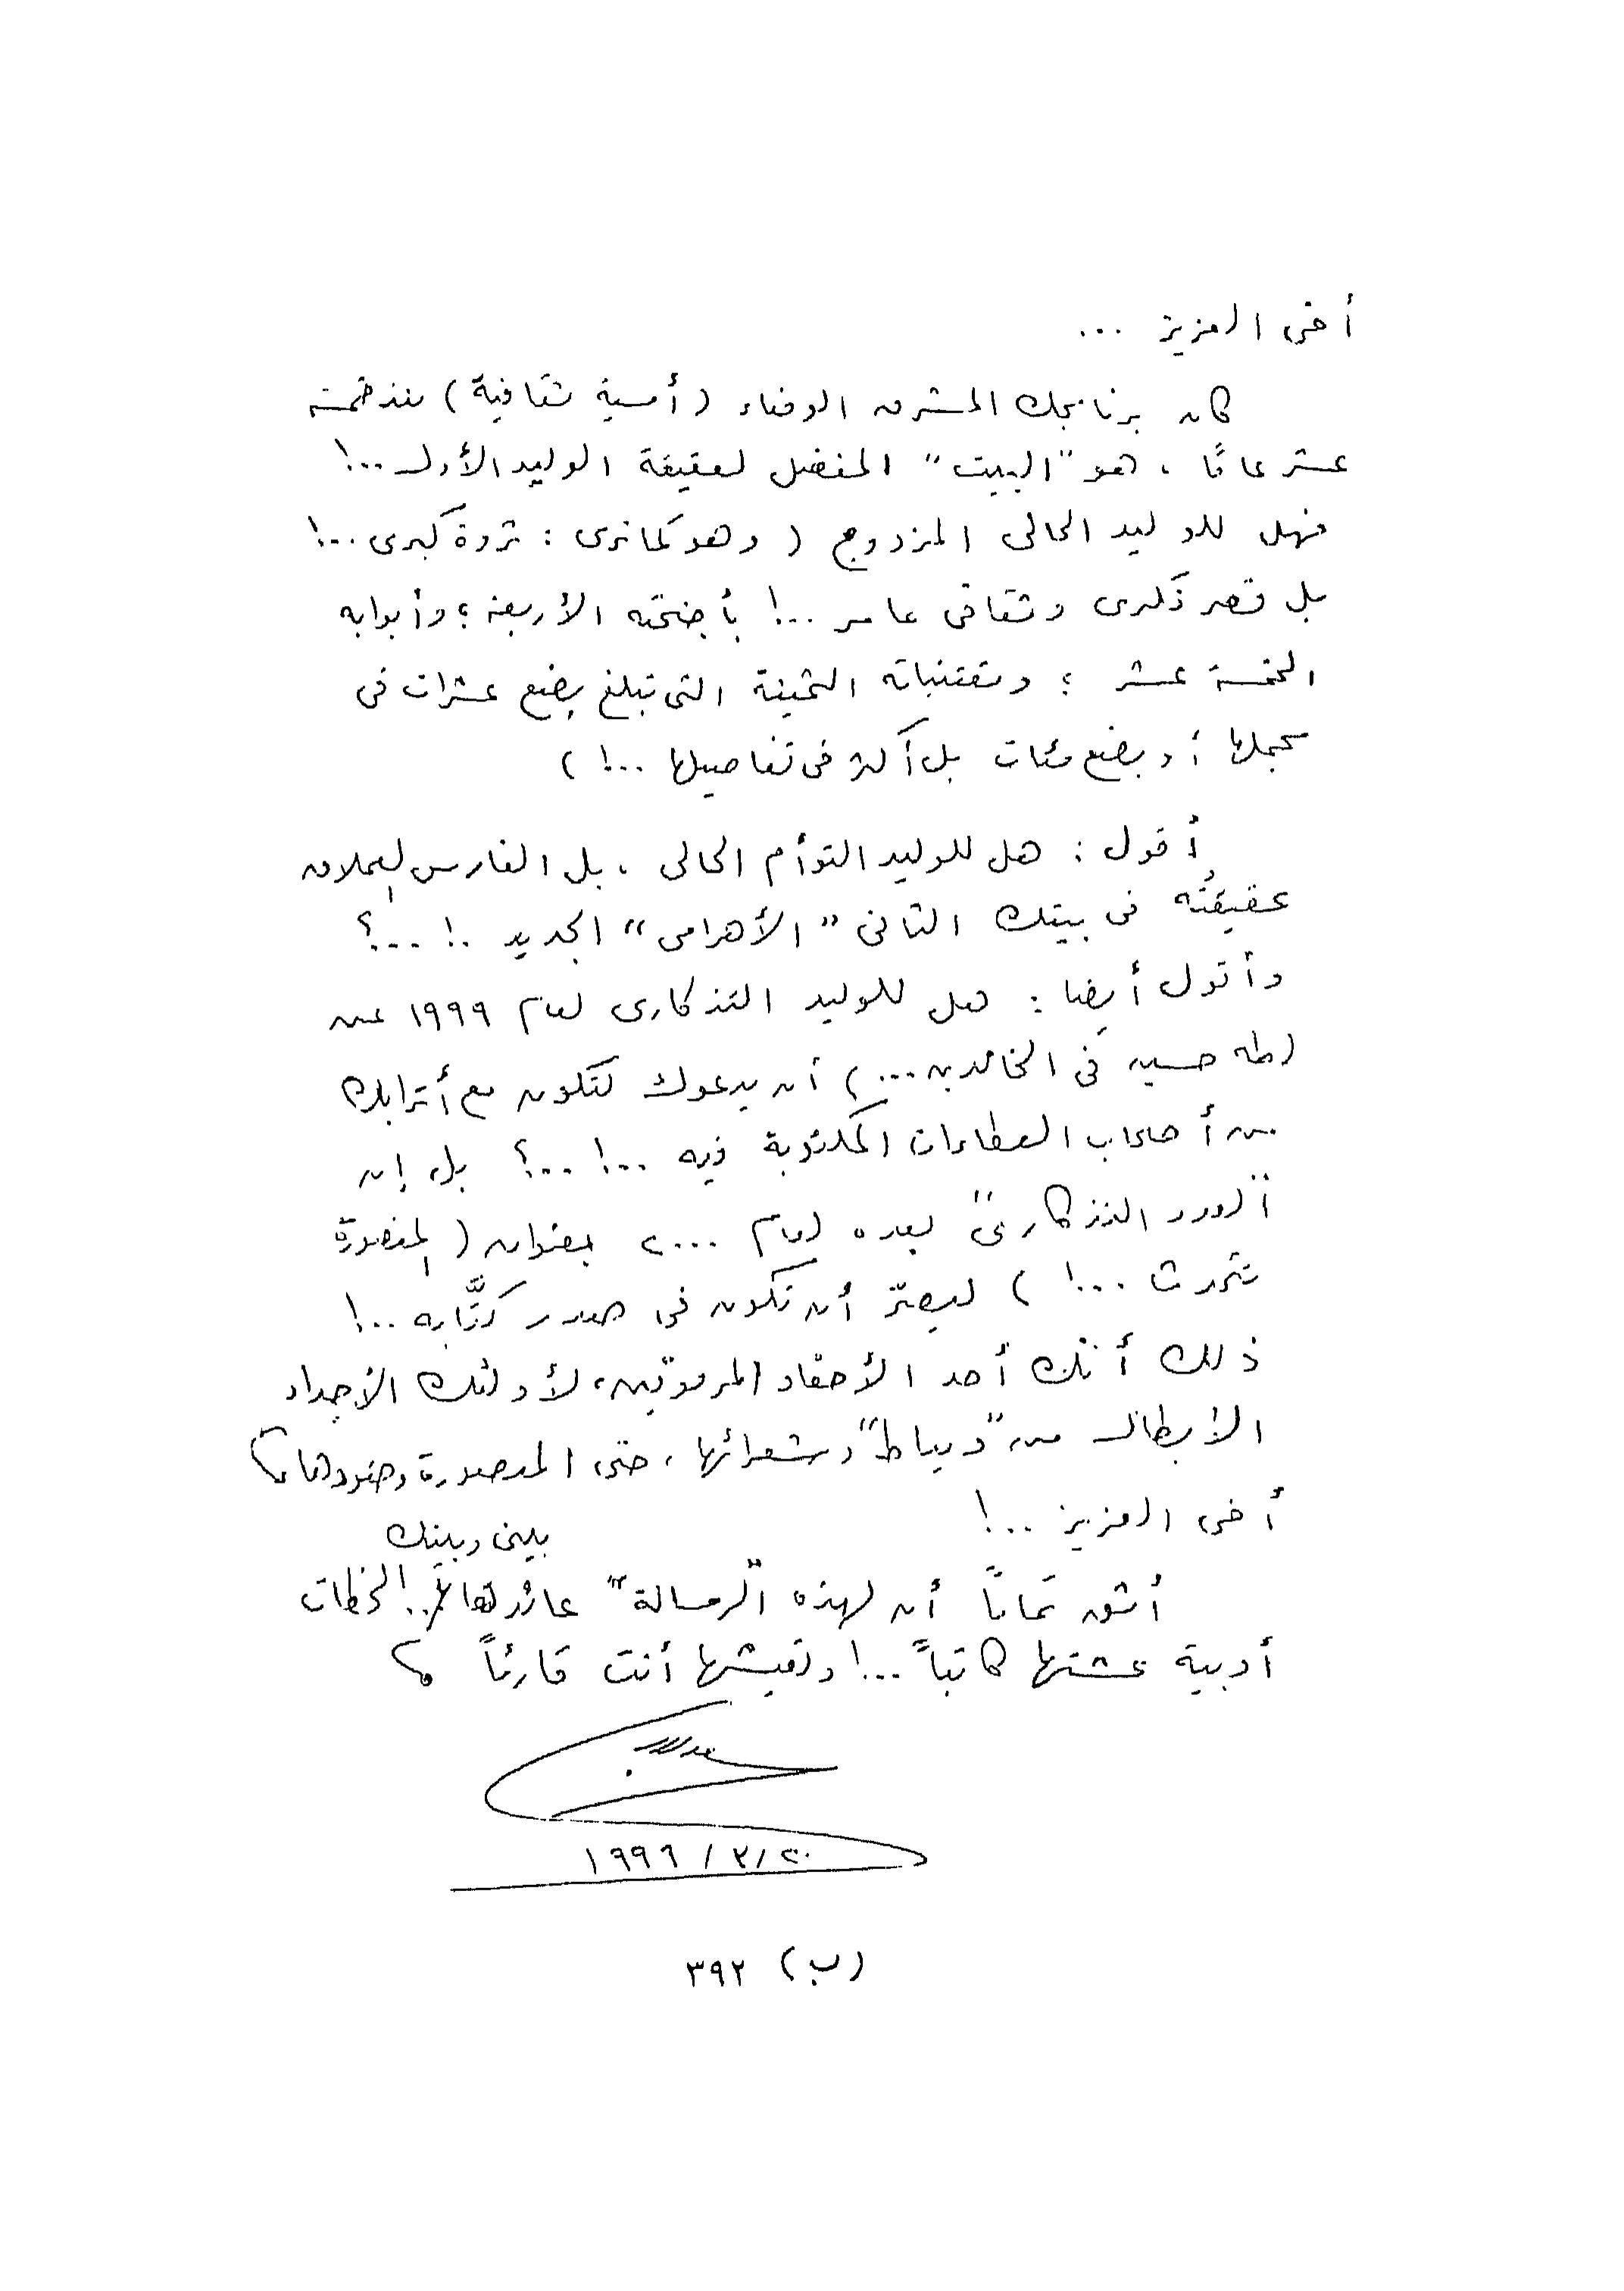 أخى العزيز ...
كان برنامجك المشرق الوضاء (أمسية ثقافية) منذ خمسة
عشر عامًا ، هو "البيت" المفضل لعقيقة الوليد الأول ...!
فهل للوليد الحالى المزدوج ( وهو كما ترى : ثروة كبرى ...!
بل قصر فكرى وثقافى عامر ...! بأجنحته الأربعة ؛ وأبوابه
الخمسة عشر ؛ ومقتنياته الثمينة التى تبلغ بضع عشرات فى
مجملها أو بضع مئات بل أكثر فى تفاصيلها ...! )
أقول : هل للوليد التوأم الحالى ، بل الفارس العملاق
عقيقتُه فى بيتك الثانى "الأهرامى" الجديد ..! ...؟
وأقول أيضا : هل للوليد التذكارى لعام ١٩٩٩ عن
(طه حسين فى الخالدين ...) أن يدعوك لتكون مع أترابك
من أصحاب العطاءات المكتوبة فيه ...! ...؟ بل إن
"الورد التذكارى" بعده لعام ٢٠٠٠ بعنوان ( المنصورة
تتحدث ...! ) ليعتزّ أن تكون فى صدر كتَّابه ...!
ذلك أنك أحد الأحفاد المرموقين، لأولئك الأجداد
الأبطال من "دمياط" وشعرائها ، حتى المنصورة وجنودها
أخى العزيز ...!
بينى وبينك
أثق تمامًا أن لهذه "الرسالة" عائدها ..! لحظات
أدبية عشتها كاتباً ...! وتعيشها أنت قارئاً
٢٠ / ٢ / ١٩٩٩
(ب) ٣٩٢